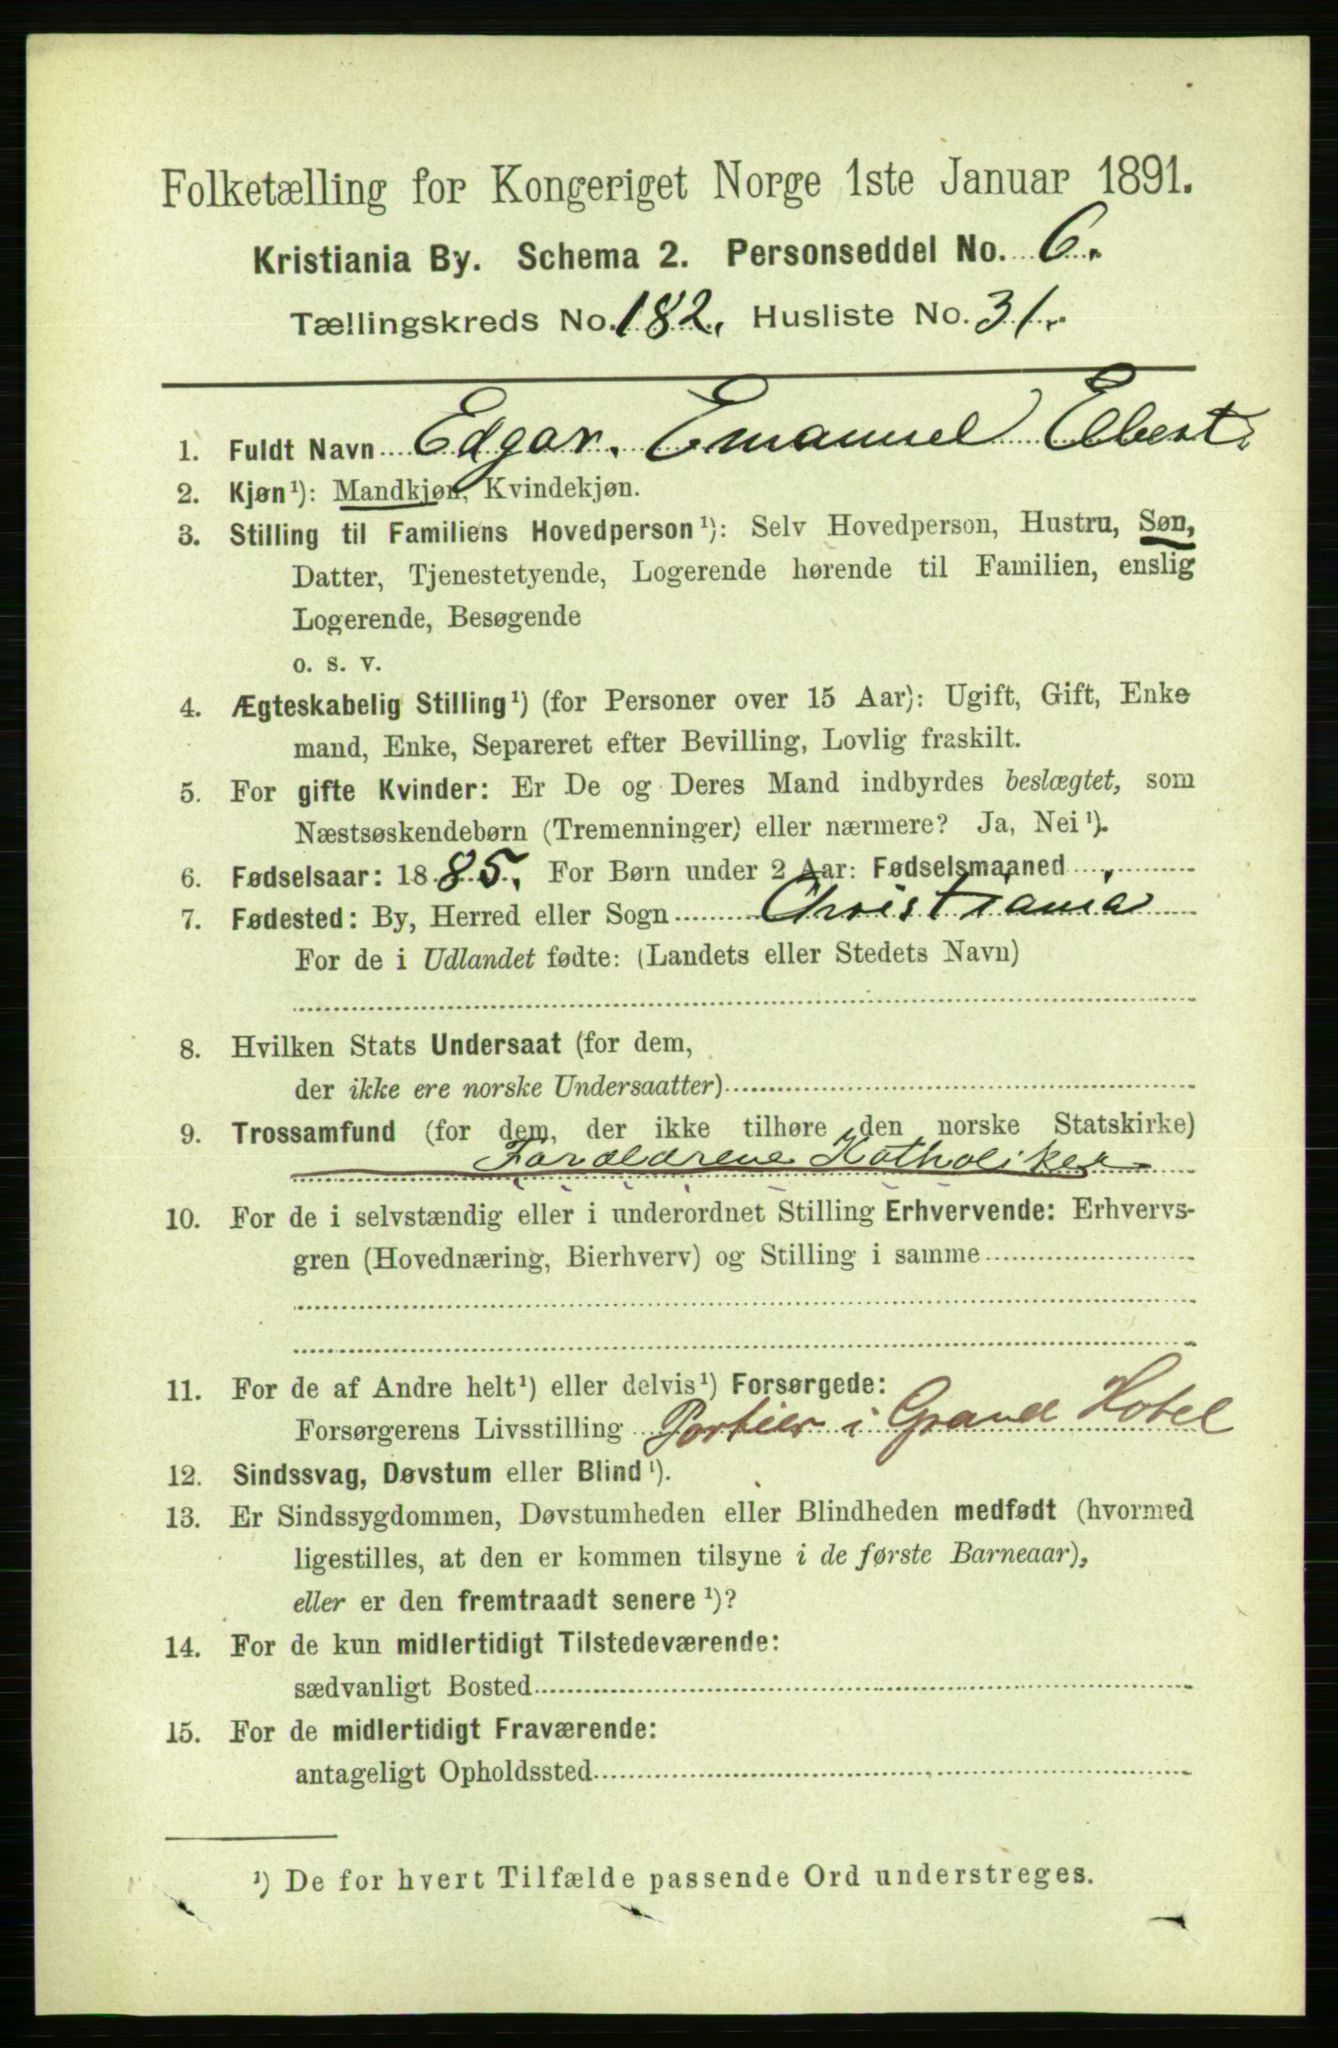 Folketælling for Kongeriget Norge 1ste Januar 1891.
Kristiania By. Schema 2. Personseddel No. 6.
Tællingskreds No. 182. Husliste No. 31.
1. Fuldt Navn Edgar. Emanuel Ebert.
2. Kjøn¹): Mandkjøn, Kvindekjøn.
3. Stilling til Familiens Hovedperson¹): Selv Hovedperson, Hustru, Søn,
Datter, Tjenestetyende, Logerende hørende til Familien, enslig
Logerende, Besøgende
o. s. v.
4. Ægteskabelig Stilling¹) (for Personer over 15 Aar): Ugift, Gift, Enke
mand, Enke, Separeret efter Bevilling, Lovlig fraskilt.
5. For gifte Kvinder: Er De og Deres Mand indbyrdes beslægtet, som
Næstsøskendebørn (Tremenninger) eller nærmere? Ja, Nei¹).
6. Fødselsaar: 1885. For Børn under 2 Aar: Fødselsmaaned
7. Fødested: By, Herred eller Sogn Christiania
For de i Udlandet fødte: (Landets eller Stedets Navn)
8. Hvilken Stats Undersaat (for dem,
der ikke ere norske Undersaatter)
9. Trossamfund (for dem, der ikke tilhøre den norske Statskirke)
Forældrene Katholiker
10. For de i selvstændig eller i underordnet Stilling Erhvervende: Erhvervs-
gren (Hovednæring, Bierhverv) og Stilling i samme
11. For de af Andre helt¹) eller delvis¹) Forsørgede:
Forsørgerens Livsstilling Portier i Grand Hotel
12. Sindssvag, Døvstum eller Blind¹).
13. Er Sindssygdommen, Døvstumheden eller Blindheden medfødt (hvormed
ligestilles, at den er kommen tilsyne i de første Barneaar),
eller er den fremtraadt senere¹)?
14. For de kun midlertidigt Tilstedeværende:
sædvanligt Bosted
15. For de midlertidigt Fraværende:
antageligt Opholdssted
¹) De for hvert Tilfælde passende Ord understreges.